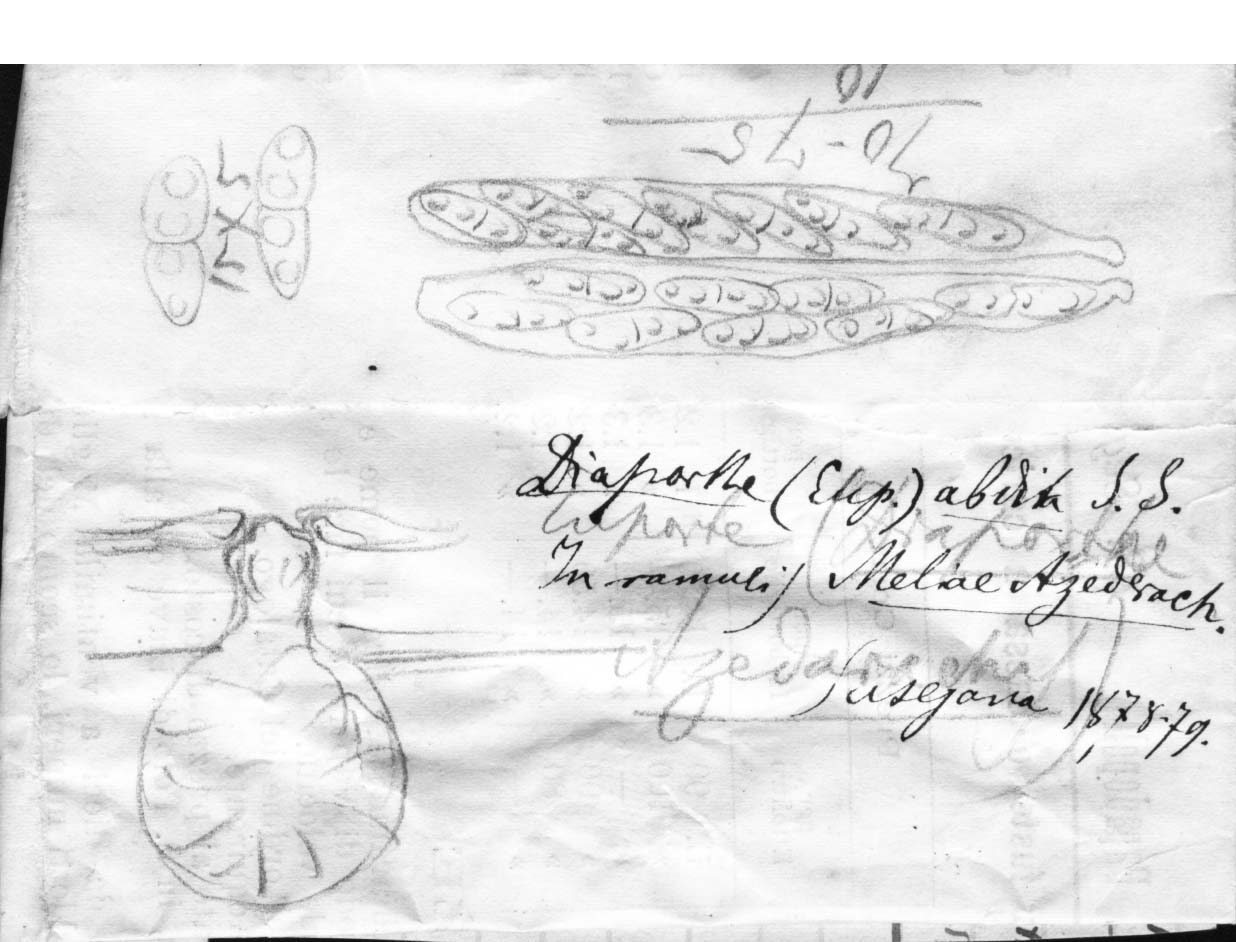 70-75
10
15 X 5
Diaporthe (Eup.) abdita S. S.
(Diaporthe
In ramulis Meliae Azederach.
Susegana 1878-79.